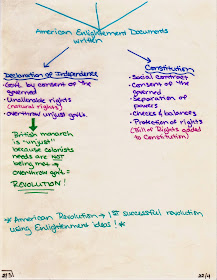 American Enlightenment Documents
written
Declaration of Independence
• Govt. by consent of the
governed
• Unalienable rights
(natural rights)
• overthrow unjust govt.
British monarch
is "unjust"
because colonists
needs are NOT
being met →
overthrow govt =
REVOLUTION!
Constitution
• Social contract
• Consent of the
governed
• Separation of
powers
• Checks & balances
• Protection of rights
(Bill of Rights added
to Constitution)
* American Revolution → 1st successful revolution
using Enlightenment ideas! *